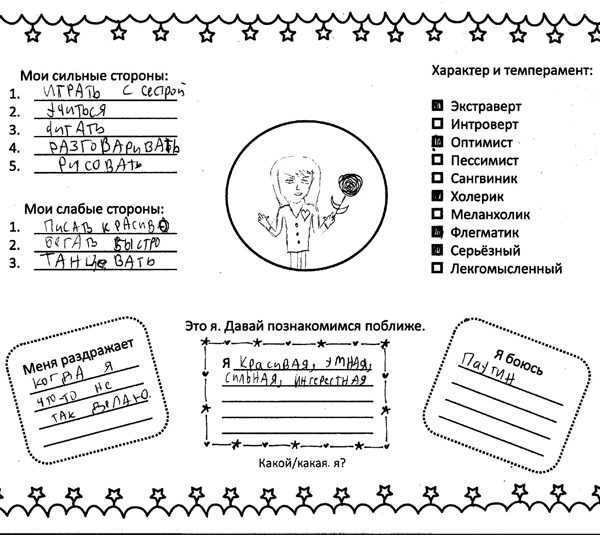 Мои сильные стороны:
1. ИГРАТЬ С сестрой
2. УЧИТЬСЯ
3. ЧИТАТЬ
4. РАЗГОВАРИВАТЬ
5. РИСОВАТЬ
Мои слабые стороны:
1. ПИСАТЬ КРАСИВО
2. БЕГАТЬ БЫСТРО
3. ТАНЦЕВАТЬ
Характер и темперамент:
Экстраверт
Интроверт
Оптимист
Пессимист
Сангвиник
Холерик
Меланхолик
Флегматик
Серьёзный
Легкомысленный
Это я. Давай познакомимся поближе.
Меня раздражает
КОГДА Я
ЧТО-ТО НЕ
ТАК ДЕЛАЮ.
Я КРАСИВАЯ, УМНАЯ,
СИЛЬНАЯ, ИНТЕРЕСТНАЯ
Какой/какая. я?
Я боюсь
ПАУТИН